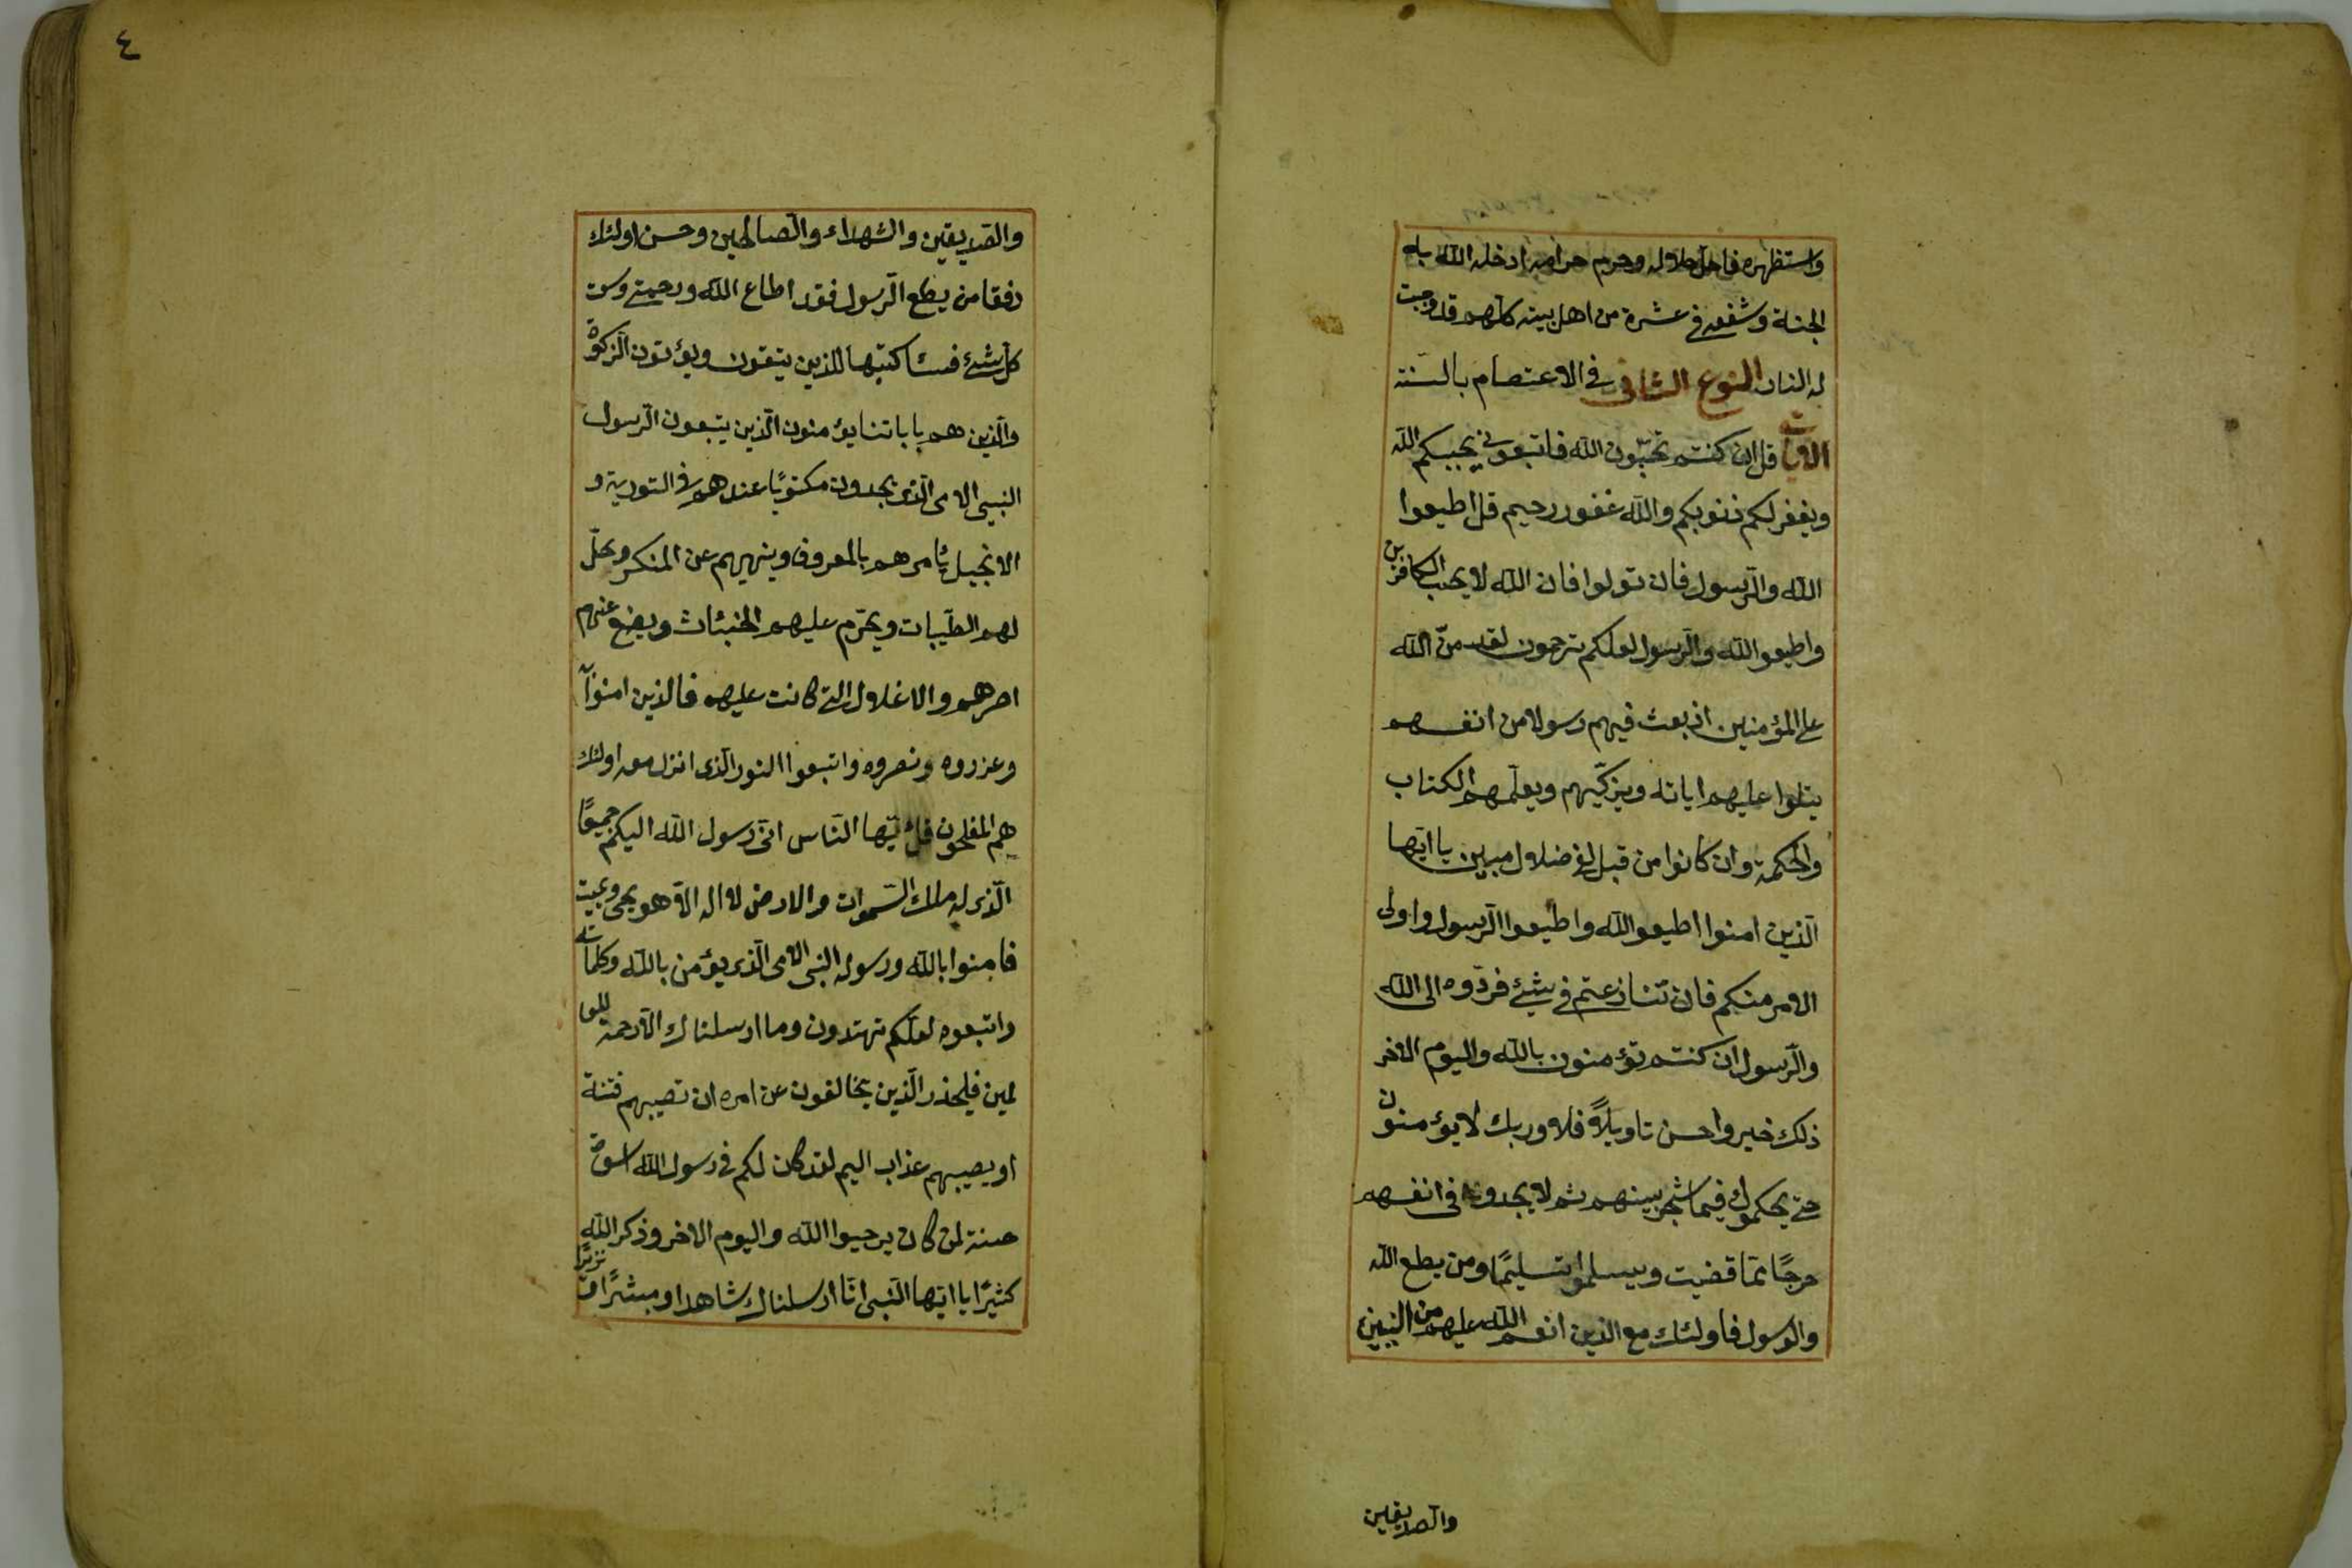 واستظهره فاحل حلاله وحرم حرامه ادخله الله به
الجنة وشفعه في عشرة من اهل بيته كلهم قد وجبت
له النار النوع الثاني في الاعتصام بالسنة
الايات قل ان كنتم تحبّون الله فاتبعوني يحببكم الله
ويغفر لكم ذنوبكم والله غفور رحيم قل اطيعوا
الله والرّسول فان تولوا فان الله لا يحب الكافرين
واطيعو الله والرّسول لعلكم ترحمون لقد منّ الله
على المؤمنين اذ بعث فيهم رسولا من انفسهم
يتلوا عليهم اياته ويزكّيهم ويعلّمهم الكتاب
والحكمة وان كانوا من قبل لفي ضلال مبين يا ايّها
الّذين امنوا اطيعو الله واطيعوا الرّسول واولى
الامر منكم فان تنازعتم في شئ فردّوه الى الله
والرّسول ان كنتم تؤمنون بالله واليوم الاخر
ذلك خير واحسن تاويلاً فلا وربك لا يؤمنون
حتى يحكموك فيما شجر بينهم ثم لا يجدوا فى انفسهم
حرجًا ممّا قضيت ويسلموا تسليمًا ومن يطع الله
والرسول فاولئك مع الذين انعم الله عليهم من النبيين
والصديقين
٤
والصديقين والشهداء والصالحين وحسن اولئك
رفقا من يطع الرّسول فقد اطاع الله ورحمتى وسعت
كلّ شئ فسئاكتبها للذين يتقون ويؤتون الزكوة
والّذين هم باياتنا يؤمنون الّذين يتبعون الرّسول
النبي الامى الّذى يجدون مكتوبًا عندهم فى التورية و
الانجيل ئامرهم بالمعروف وينهيهم عن المنكر ويحلّ
لهم الطّيبات ويحرّم عليهم الخبئاث ويضع عنهم
اصرهم والاغلال التى كانت عليهم فالذين امنوا به
وعزروه ونصروه واتبعوا النور الّذى انزل معه اولئك
هم المفلحون قل يٰايّها النّاس انّى رسول الله اليكم جميعًا
الّذى له ملك السّموات والارض لا اله الّا هو يحيى ويميت
فامنوا بالله ورسوله النبى الامى الّذى يؤمن بالله وكلماته
واتبعوه لعلّكم تهتدون وما ارسلناك الّا رحمة للعا
لمين فليحذر الّذين يخالفون عن امره ان تصيبهم فتنة
او يصيبهم عذاب اليم لقد كان لكم فى رسول الله اسوة
حسنة لمن كان يرجوا الله واليوم الاخر وذكر الله
كثيرًا يا ايّها النّبى انّا ارسلناك شاهدا ومبشرًا ونذيرًا